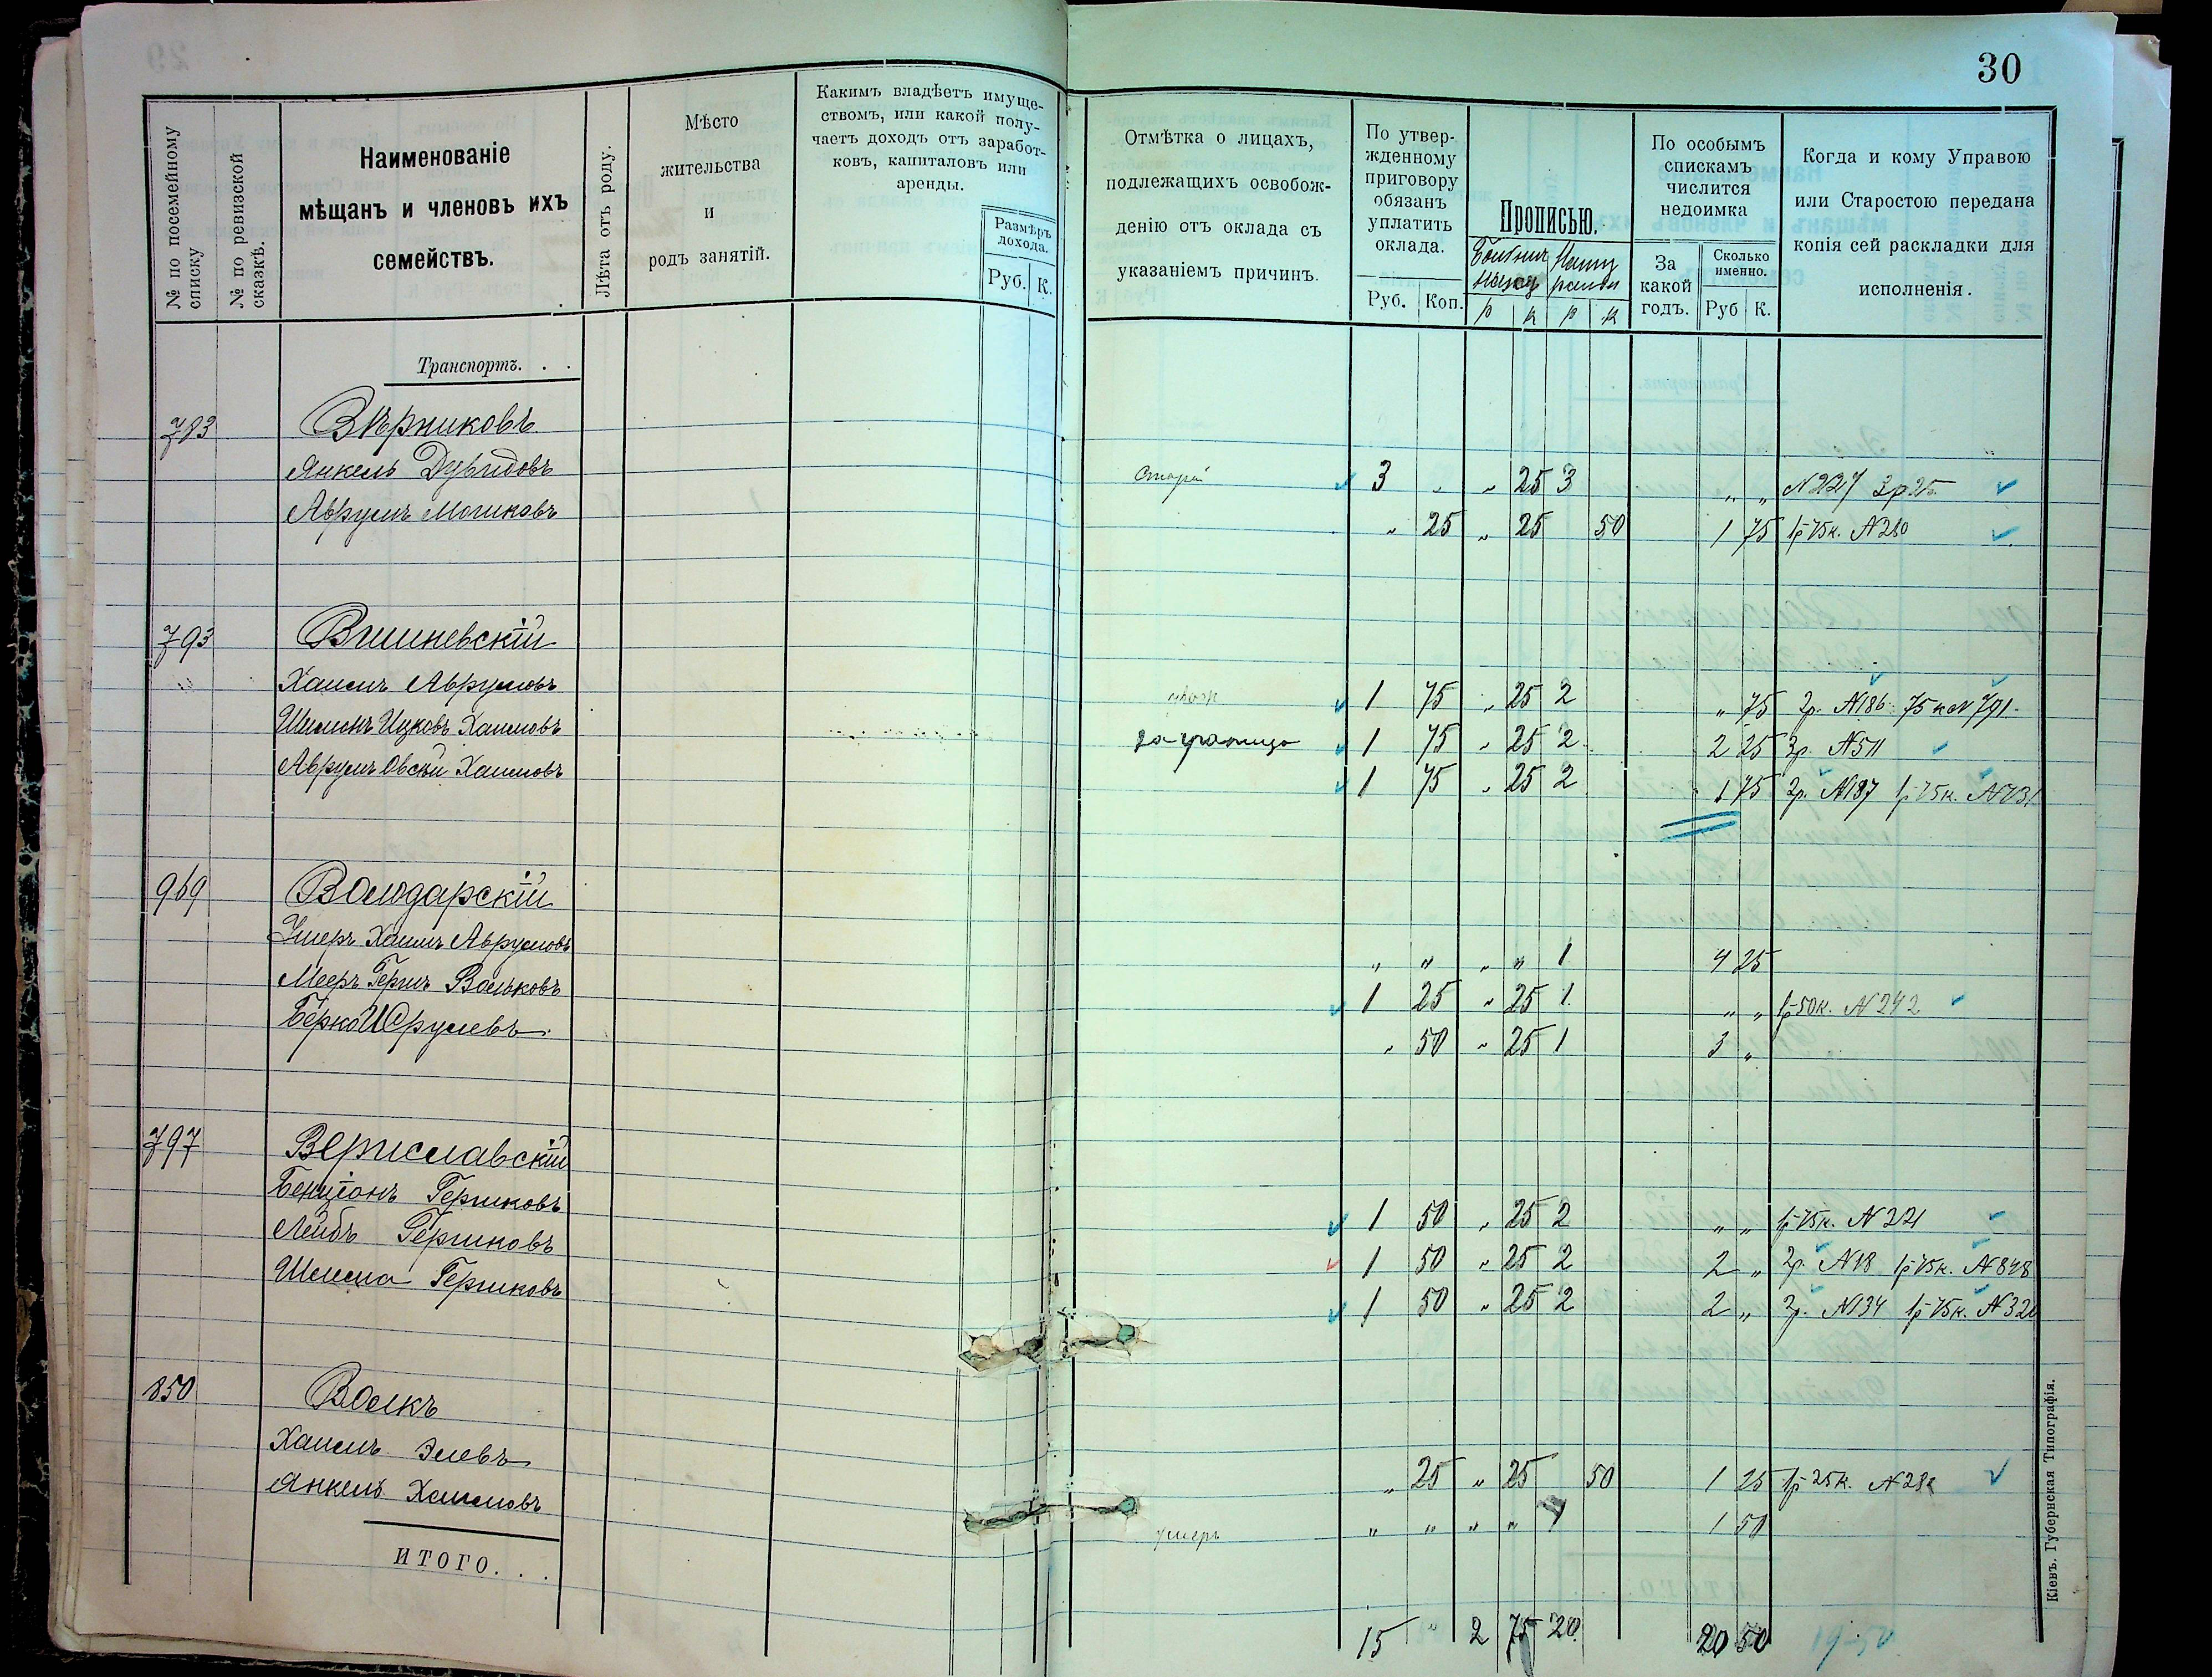 30
№ по посемейному списку
№ по ревизской сказкѣ.
Наименованіе
мѣщанъ и членовъ ихъ
семействъ.
Лѣта отъ роду.
Мѣсто
жительства
и
родъ занятій.
Какимъ владѣетъ имуще-
ствомъ, или какой полу-
чаетъ доходъ отъ заработ-
ковъ, капиталовъ или
аренды.
Размѣръ
дохода.
Руб. К.
Отмѣтка о лицахъ,
подлежащихъ освобож-
денію отъ оклада съ
указаніемъ причинъ.
По утвер-
жденному
приговору
обязанъ
уплатить
оклада.
Руб. Коп.
Прописью.
р к р к
По особымъ
спискамъ
числится
недоимка
За
какой
годъ.
Сколько
именно.
Руб К.
Когда и кому Управою
или Старостою передана
копія сей раскладки для
исполненія.
Транспортъ. . .
783 Вѣрниковъ
Янкель Дувидовъ 3 „ „ 25 3 „ „ N 227 3р 25
Аврумъ Мошковъ „ 25 „ 25 50 1 75 1р 75к. N 280
793 Вишневскій
Хаимъ Аврумовъ 1 75 „ 25 2 „ 75 2р. N186 75к N 791
Шимонъ Ицковъ Хаимовъ за границо 1 75 „ 25 2 2 25 2р. N511
Аврумъ Овсій Хаимовъ 1 75 „ 25 2 1 75 2р. N187 1р 75к.
969 Володарскій
Умеръ Хаимъ Аврумовъ „ „ „ „ 1 4 25
Мееръ Гершъ Вольковъ 1 25 „ 25 1 „ „ 1р 50к. N 242
Берко Юрулевъ „ 50 „ 25 1 3 „
797 Вериславскій
Бенціонъ Гершковъ 1 50 „ 25 2 „ „ 1р 75к. N 221
Лейбъ Гершковъ 1 50 „ 25 2 2 „ 2р. N18 1р 75к. N 848
Шлема Гершковъ 1 50 „ 25 2 2 „ 2р. N134 1р 75к. N 320
850 Волкъ
Хаимъ Элевъ „ 25 „ 25 50 1 25 1р 25к. N 282
Янкель Хаимовъ умеръ „ „ „ „ 1 1 50
ИТОГО. . .
15 „ 2 75 20 20 50 19-50
Кіевъ. Губернская Типографія.